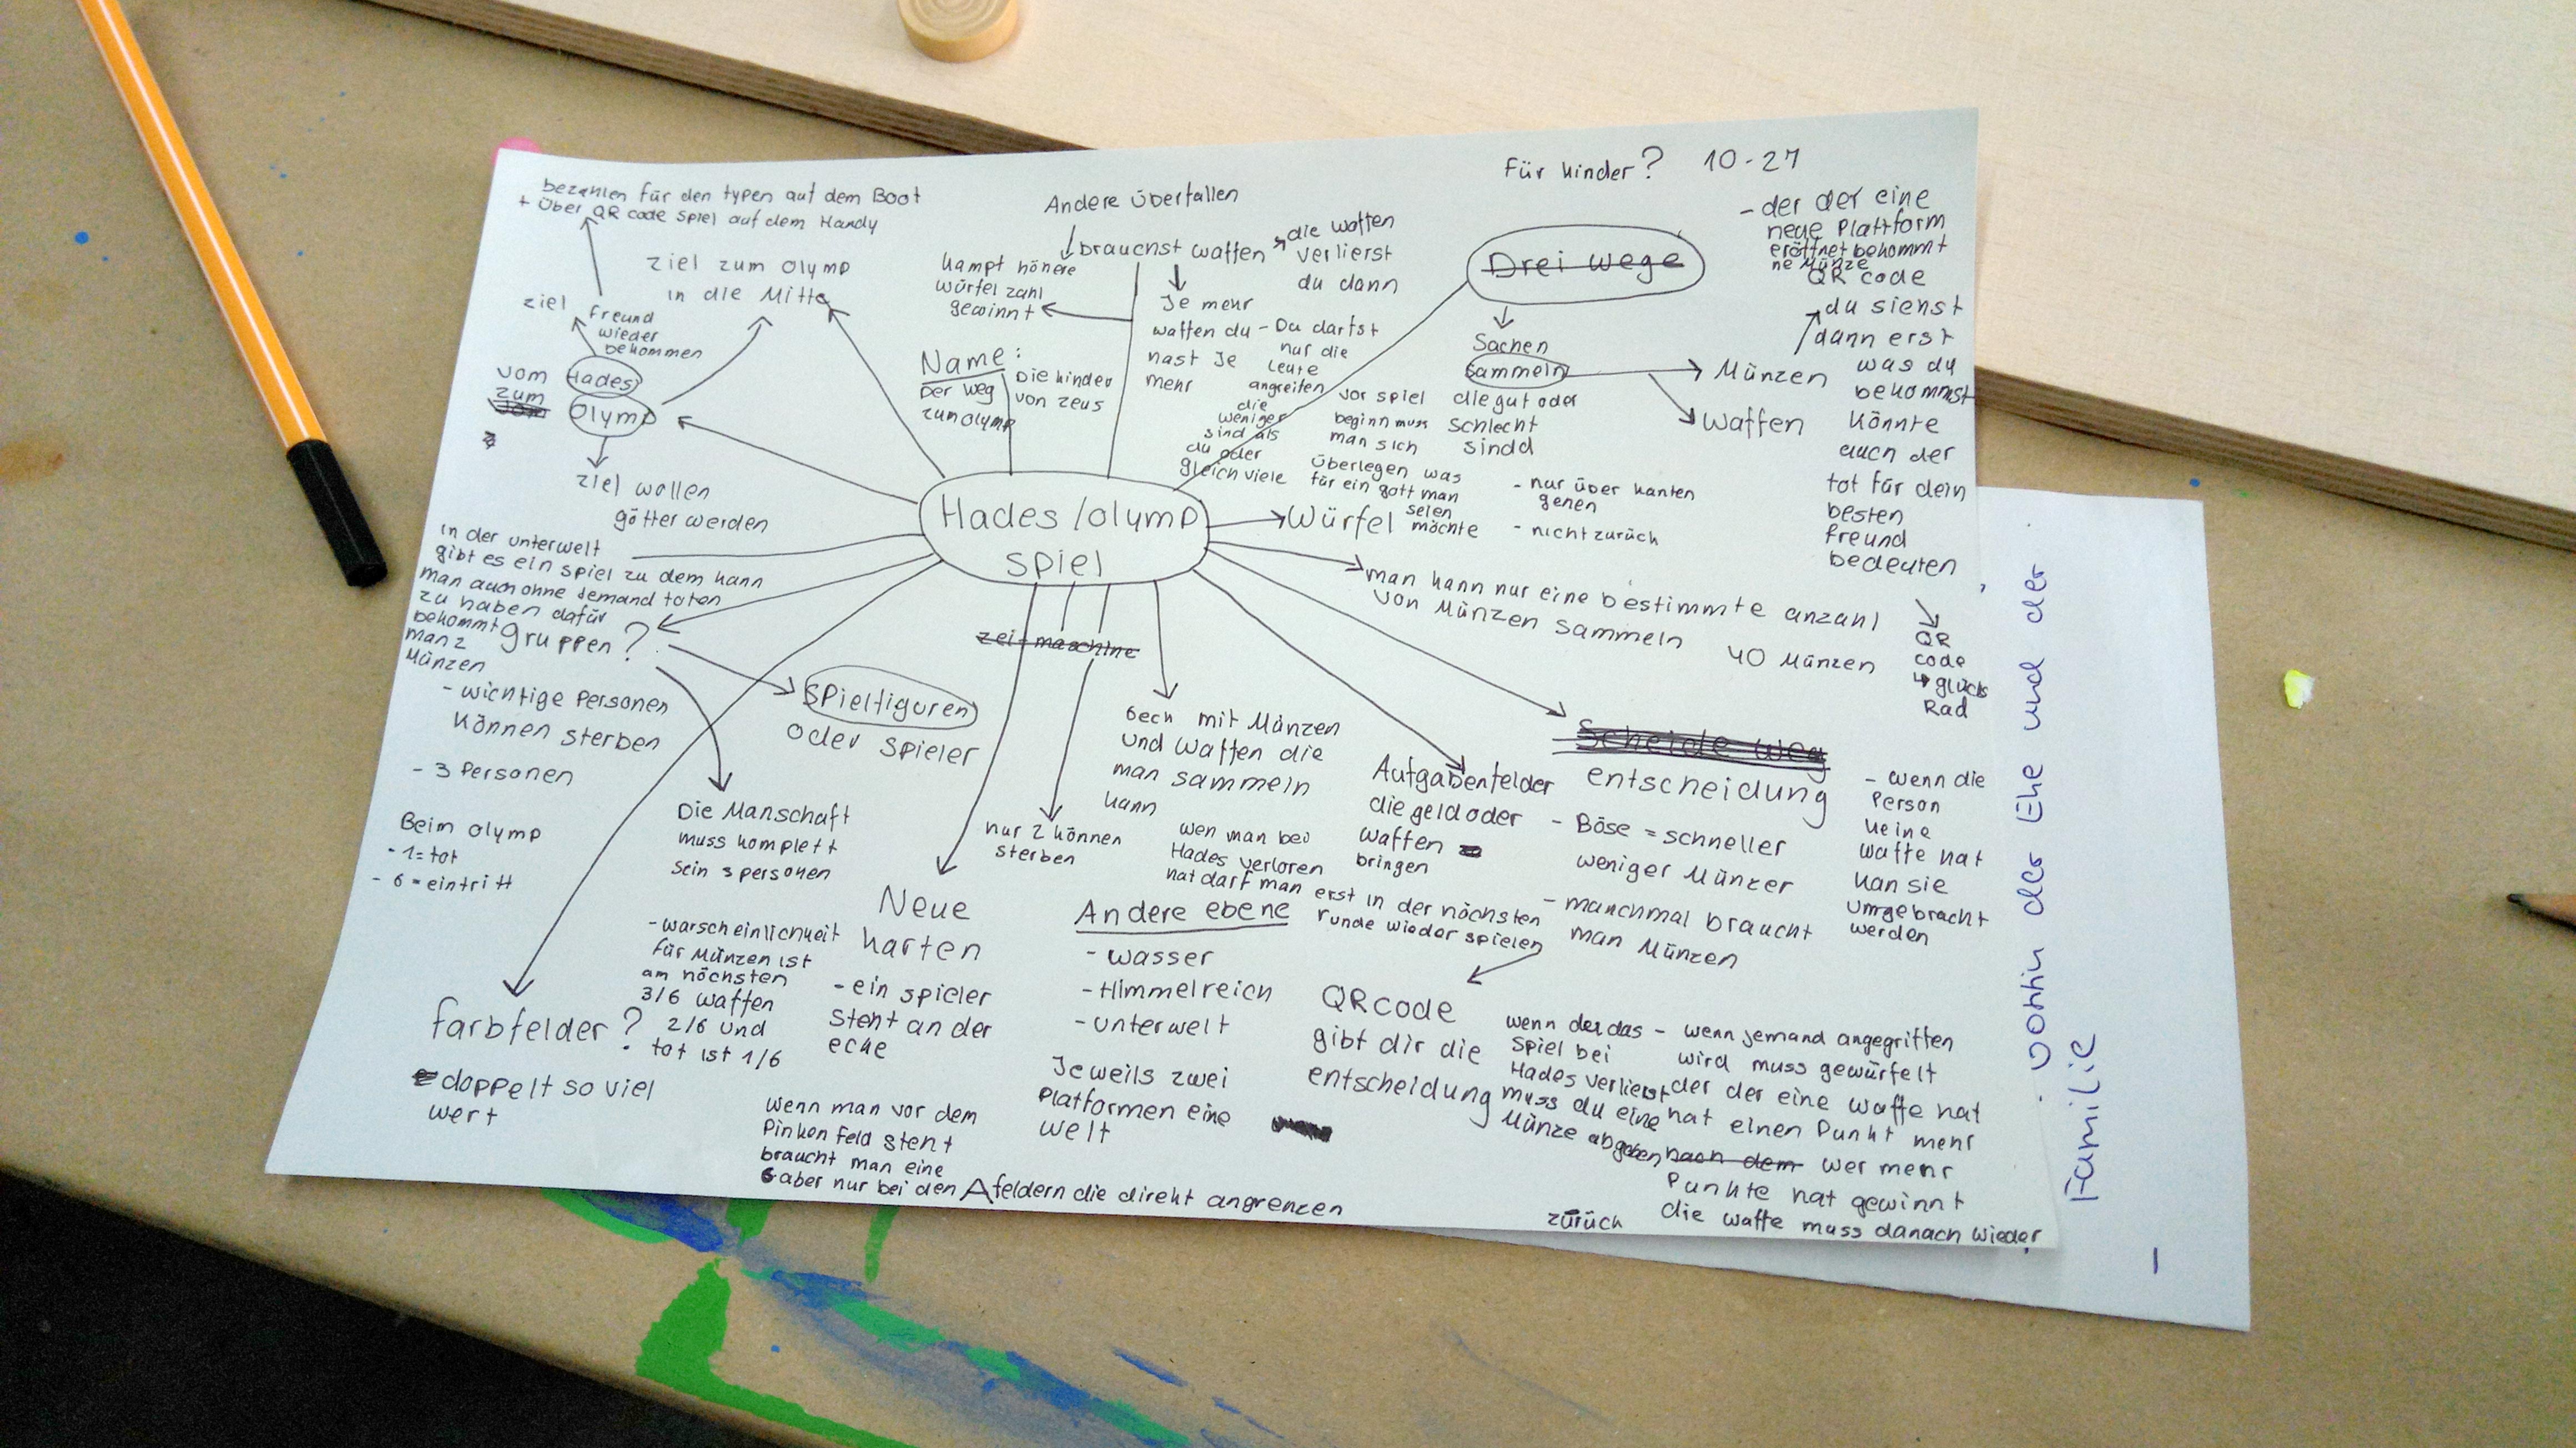 Für kinder? 10-27
bezahlen für den typen auf dem Boot
+ Über QR code spiel auf dem Handy
ziel
Freund
wieder
bekommen
vom Hades
zum
Olymp
ziel wollen
götter werden
ziel zum Olymp
in die Mitte
Name:
Der weg
zum Olymp
Die kinder
von zeus
Andere überfallen
brauchst waffen
die waffen
verlierst
du dann
kampf höhere
würfel zahl
gewinnt
Je mehr
waffen du
hast Je
mehr
- Du darfst
nur die
Leute
angreifen
die
weniger
sind als
du oder
gleich viele
Drei wege
Sachen
sammeln
die gut oder
schlecht
sind
Münzen
Waffen
- der der eine
neue Plattform
eröffnet bekommt
ne Münze
QR code
du siehst
dann erst
was du
bekommst
könnte
auch der
tot für dein
besten
Freund
bedeuten
QR
code
glücks
Rad
vor spiel
beginn muss
man sich
überlegen was
für ein gott man
möchte
- nur über kanten
gehen
- nicht zurück
Hades/Olymp
spiel
Würfel
man kann nur eine bestimmte anzahl
von Münzen sammeln
40 Münzen
in der unterwelt
gibt es ein spiel zu dem kann
man auch ohne jemand toten
zu haben dafür
bekommt
man 2
Münzen
gruppen?
- wichtige Personen
können sterben
- 3 Personen
Beim Olymp
- 1 = tot
- 6 = eintritt
Spielfiguren
oder spieler
Die Manschaft
muss komplett
sein 3 personen
zeitmaschine
nur 2 können
sterben
mit Münzen
und waffen die
man sammeln
kann
wen man bei
Hades verloren
hat darf man erst in der nächsten
runde wieder spielen
Aufgabenfelder
die geld oder
waffen
bringen
Scheide weg
entscheidung
- Böse = schneller
weniger Münzen
- manchmal braucht
man Münzen
- wenn die
Person
keine
waffe hat
kan sie
umgebracht
werden
farbfelder?
doppelt so viel
wert
- warscheinlichkeit
für Münzen ist
am höchsten
3/6 waffen
2/6 und
tot ist 1/6
Neue
karten
- ein spieler
steht an der
ecke
Andere ebene
- wasser
- Himmelreich
- unterwelt
Jeweils zwei
Platformen eine
welt
QR code
gibt dir die
entscheidung
wenn der das
spiel bei
Hades verlierst
muss du eine
Münze abgeben
- wenn jemand angegriffen
wird muss gewürfelt
der der eine waffe hat
hat einen Punkt mehr
nach dem wer mehr
Punkte hat gewinnt
die waffe muss danach wieder
zurück
wenn man vor dem
Pinken Feld steht
braucht man eine
6 aber nur bei den A feldern die direkt angrenzen
der Ehe und der
Familie